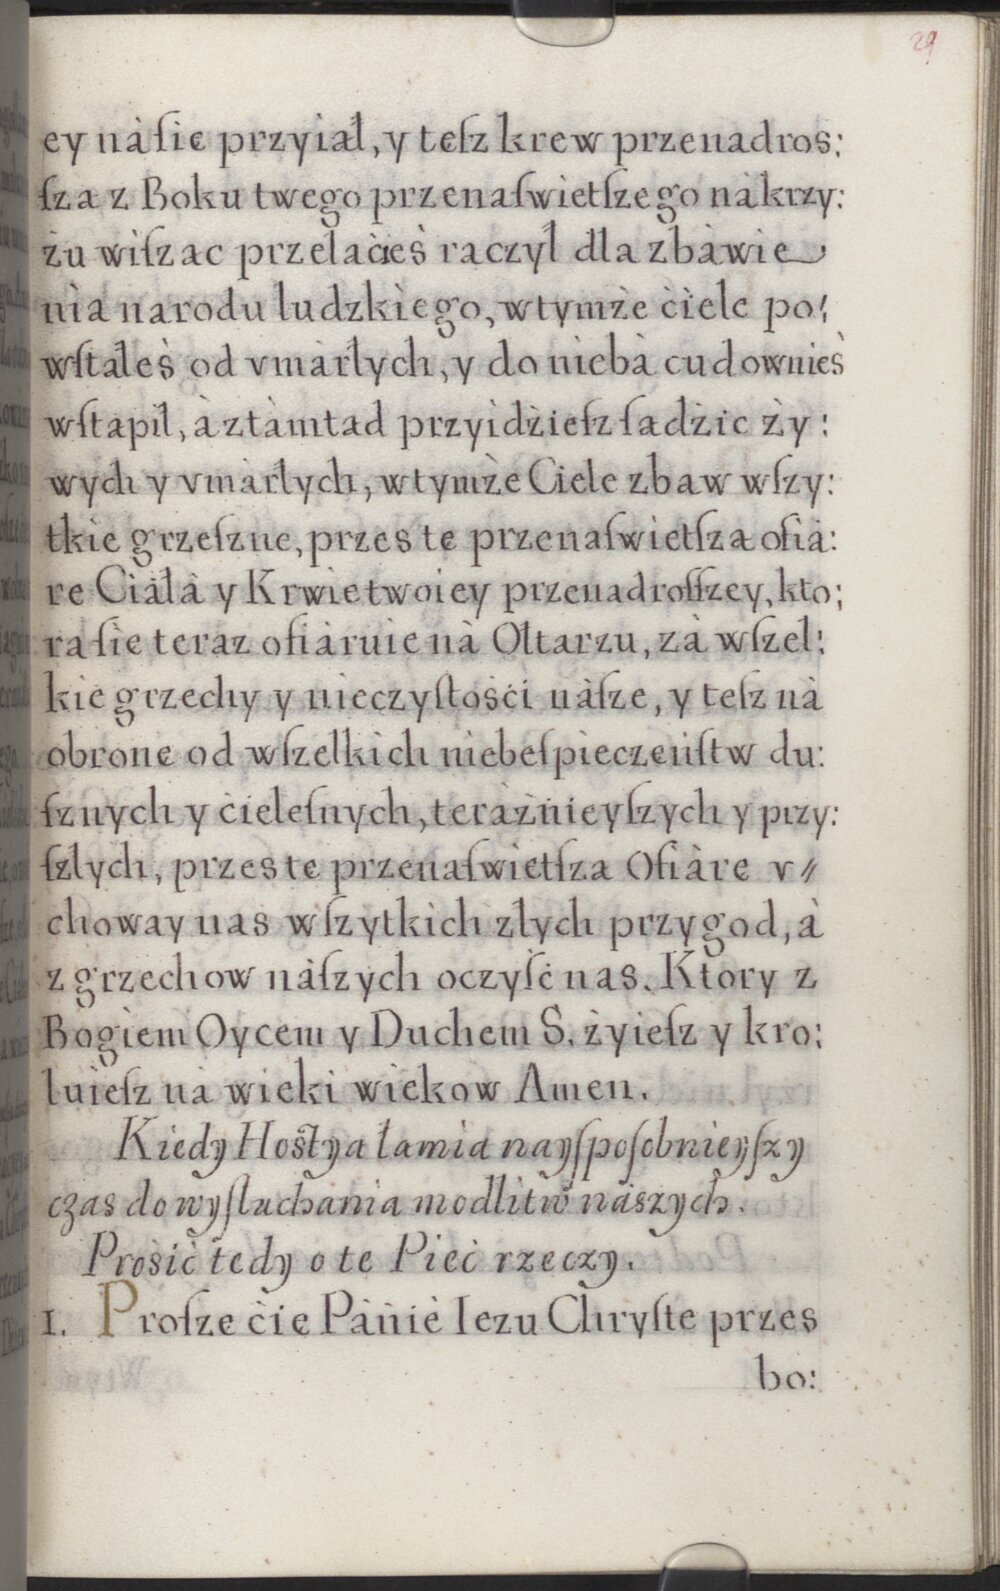 29
ey nàſie przyiał, y teſz krew przenadros:
ſza z Boku twego przenaſwietſzego nàkrzy:
żu wiſzac przelacieś raczył dla zbàwie
nia narodu ludzkiego, wtymże ċiele po:
wſtałeś od vmàrłych, y do niebà cudownieś
wſtapił, à ztàmtad przyidżieſz ſadzic ży:
wych y vmàrłych, wtymże Ciele zbaw wſzy:
tkie grzeſzne, przes te przenaſwietſza ofià:
re Ciàłà y Krwie twoiey przenadroſſzey, kto:
ra ſie teraz ofiàruie nà Ołtarzu, zà wſzel:
kie grzechy y nieczyſtośċi nàſze, y teſz nà
obrone od wſzelkich niebeſpieczeńſtw du:
ſznych y ċieleſnych, teràżnieyſzych y przy:
ſzłych, przes te przenaſwietſza Ofiàre v//
choway nas wſzytkich złych przygod, à
z grzechow nàſzych oczyſċ nas. Ktory z
Bogiem Oycem y Duchem S. żyieſz y kro:
luieſz nà wieki wiekow Amen.
Kiedy Hoſtya łamia nayſpoſobnieyſzy
czas do wyſłuchania modlitw nàszych.
Prosić tedy o te Pieć rzeczy.
1. Proſze ċie Pànie Iezu Chryſte przes
bo: